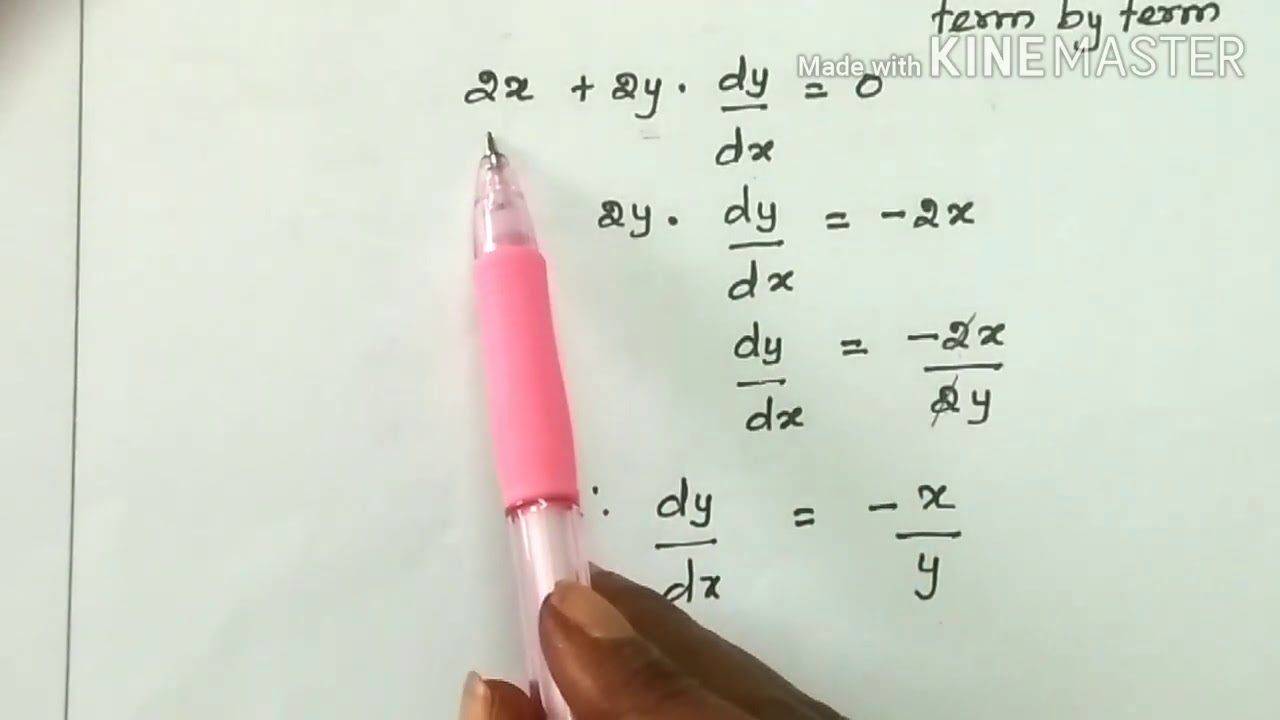 term by term
Made with KINEMASTER
2x + 2y · dy/dx = 0
2y · dy/dx = -2x
dy/dx = -2x/2y
∴ dy/dx = -x/y